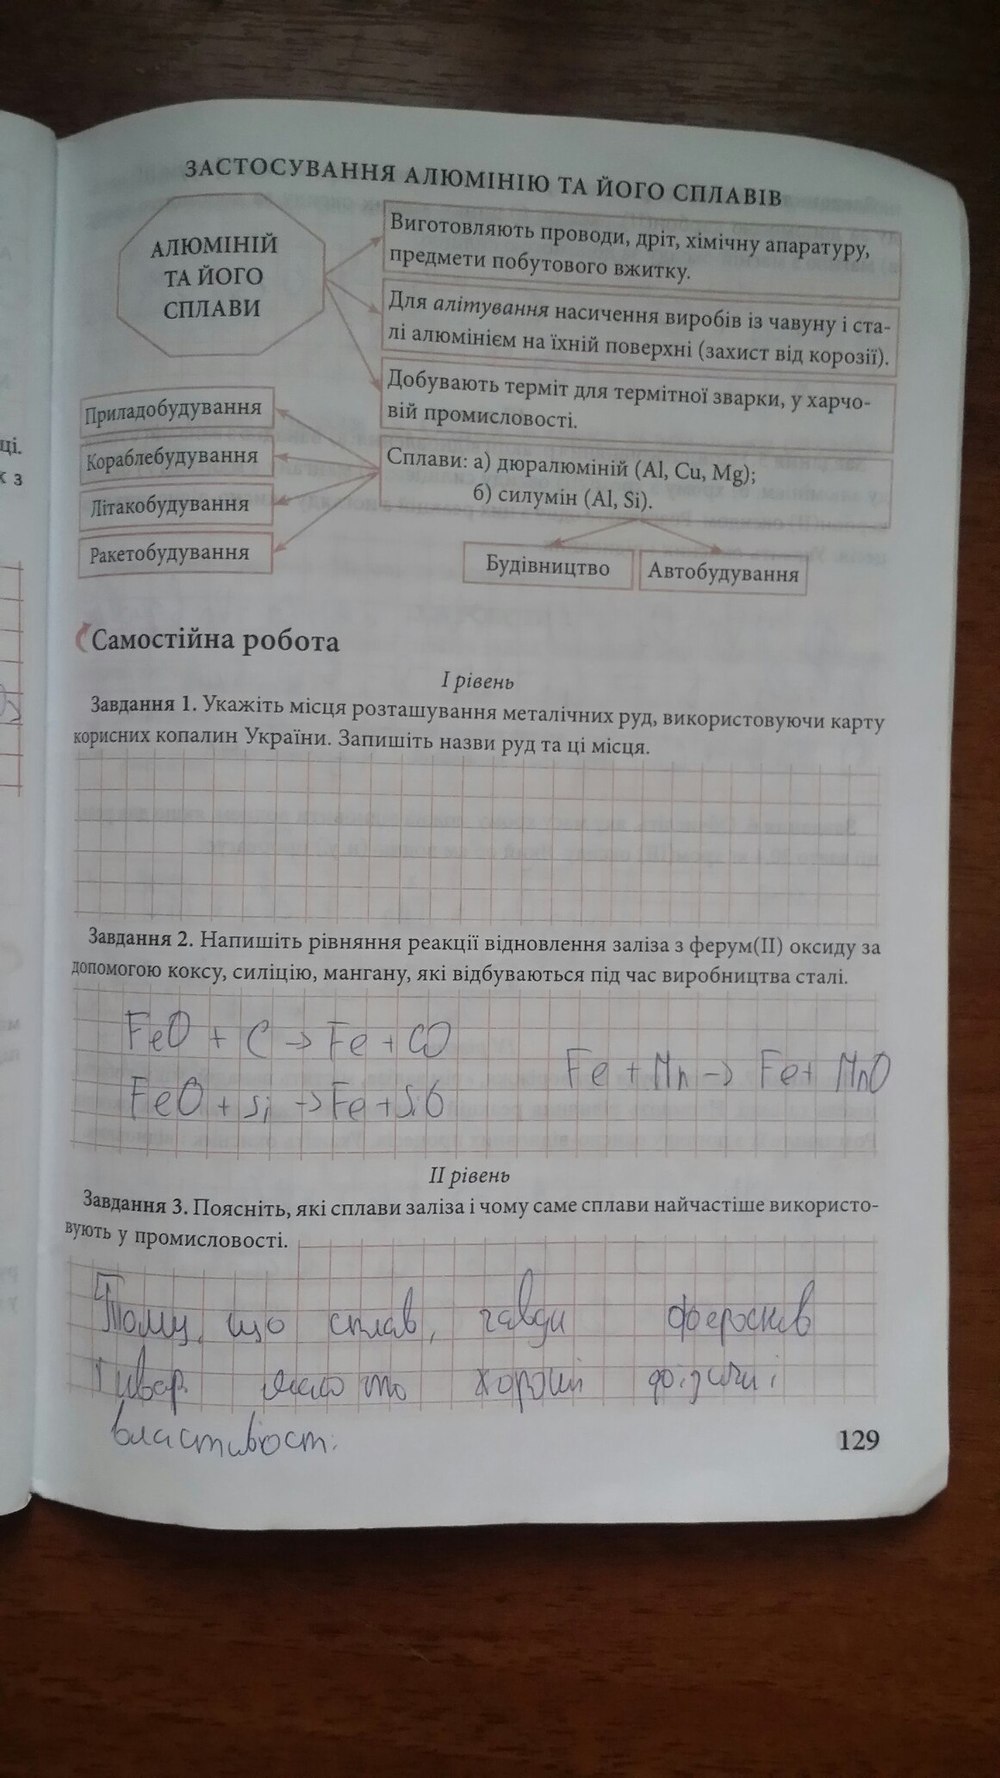 ЗАСТОСУВАННЯ АЛЮМІНІЮ ТА ЙОГО СПЛАВІВ
АЛЮМІНІЙ
ТА ЙОГО
СПЛАВИ
Виготовляють проводи, дріт, хімічну апаратуру,
предмети побутового вжитку.
Для алітування насичення виробів із чавуну і ста-
лі алюмінієм на їхній поверхні (захист від корозії).
Добувають терміт для термітної зварки, у харчо-
вій промисловості.
Приладобудування
Кораблебудування
Літакобудування
Ракетобудування
Сплави: а) дюралюміній (Al, Cu, Mg);
б) силумін (Al, Si).
Будівництво
Автобудування
Самостійна робота
І рівень
Завдання 1. Укажіть місця розташування металічних руд, використовуючи карту
корисних копалин України. Запишіть назви руд та ці місця.
Завдання 2. Напишіть рівняння реакції відновлення заліза з ферум(ІІ) оксиду за
допомогою коксу, силіцію, мангану, які відбуваються під час виробництва сталі.
FeO + C → Fe + CO
Fe + Mn → Fe + MnO
FeO + Si → Fe +
ІІ рівень
Завдання 3. Поясніть, які сплави заліза і чому саме сплави найчастіше використо-
вують у промисловості.
Тому, що сплав,
хороші фізичні
властивості
129